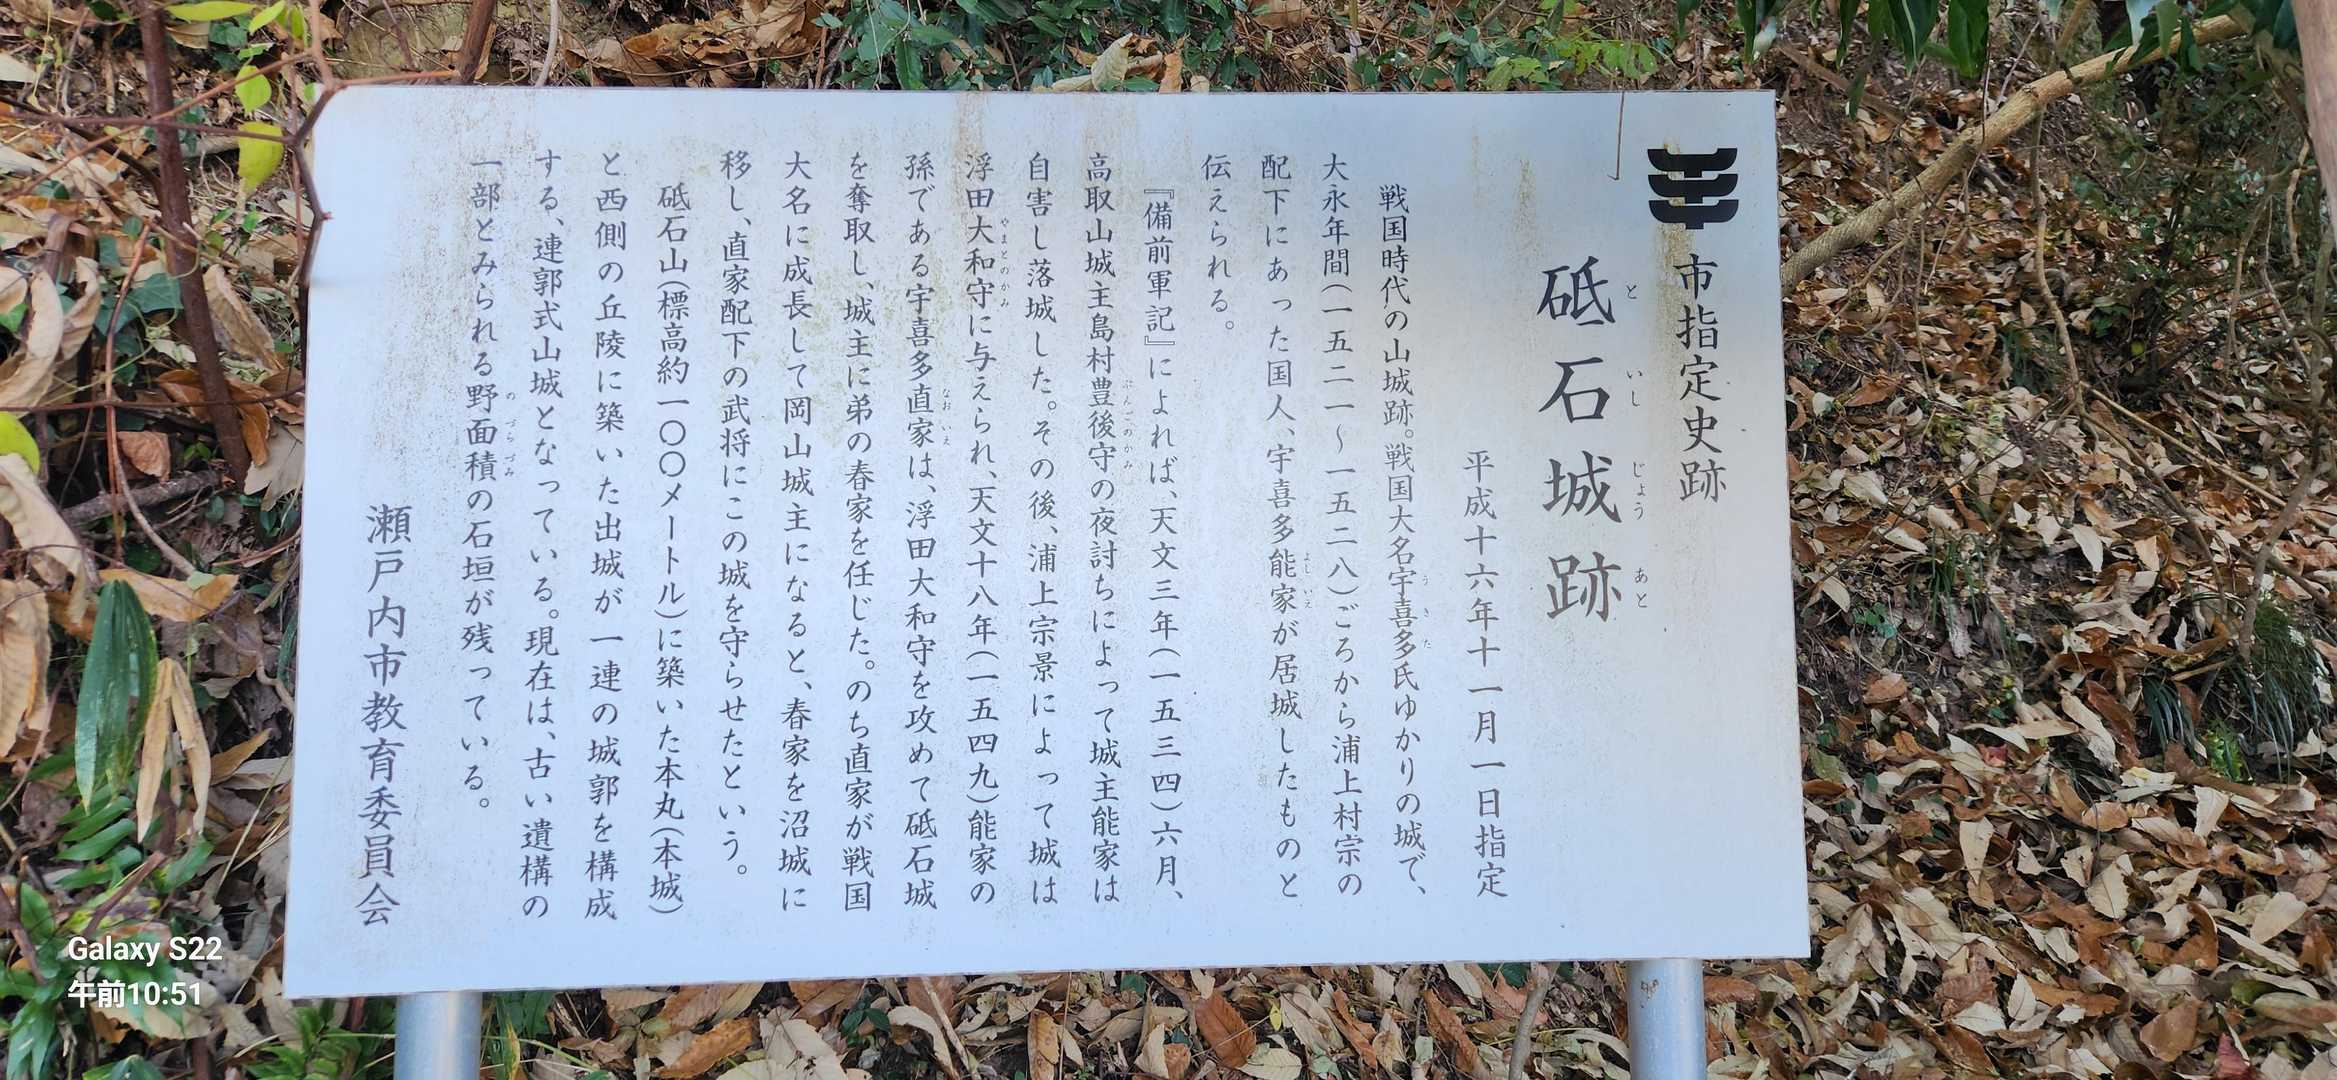 市指定史跡
砥石城跡
といしじょうあと
平成十六年十一月一日指定
戦国時代の山城跡。戦国大名宇喜多氏ゆかりの城で、
うきた
大永年間(一五二一〜一五二八)ごろから浦上村宗の
配下にあった国人、宇喜多能家が居城したものと
よしいえ
伝えられる。
『備前軍記』によれば、天文三年(一五三四)六月、
高取山城主島村豊後守の夜討ちによって城主能家は
ぶんごのかみ
自害し落城した。その後、浦上宗景によって城は
浮田大和守に与えられ、天文十八年(一五四九)能家の
やまとのかみ
孫である宇喜多直家は、浮田大和守を攻めて砥石城
なおいえ
を奪取し、城主に弟の春家を任じた。のち直家が戦国
大名に成長して岡山城主になると、春家を沼城に
移し、直家配下の武将にこの城を守らせたという。
砥石山(標高約一〇〇メートル)に築いた本丸(本城)
と西側の丘陵に築いた出城が一連の城郭を構成
する、連郭式山城となっている。現在は、古い遺構の
一部とみられる野面積の石垣が残っている。
のづらづみ
瀬戸内市教育委員会
Galaxy S22
午前10:51